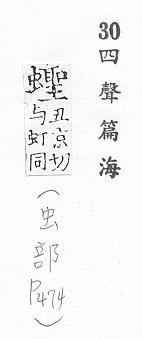 30 四聲篇海
蟶
丑京切
与虹同
(虫部P474)